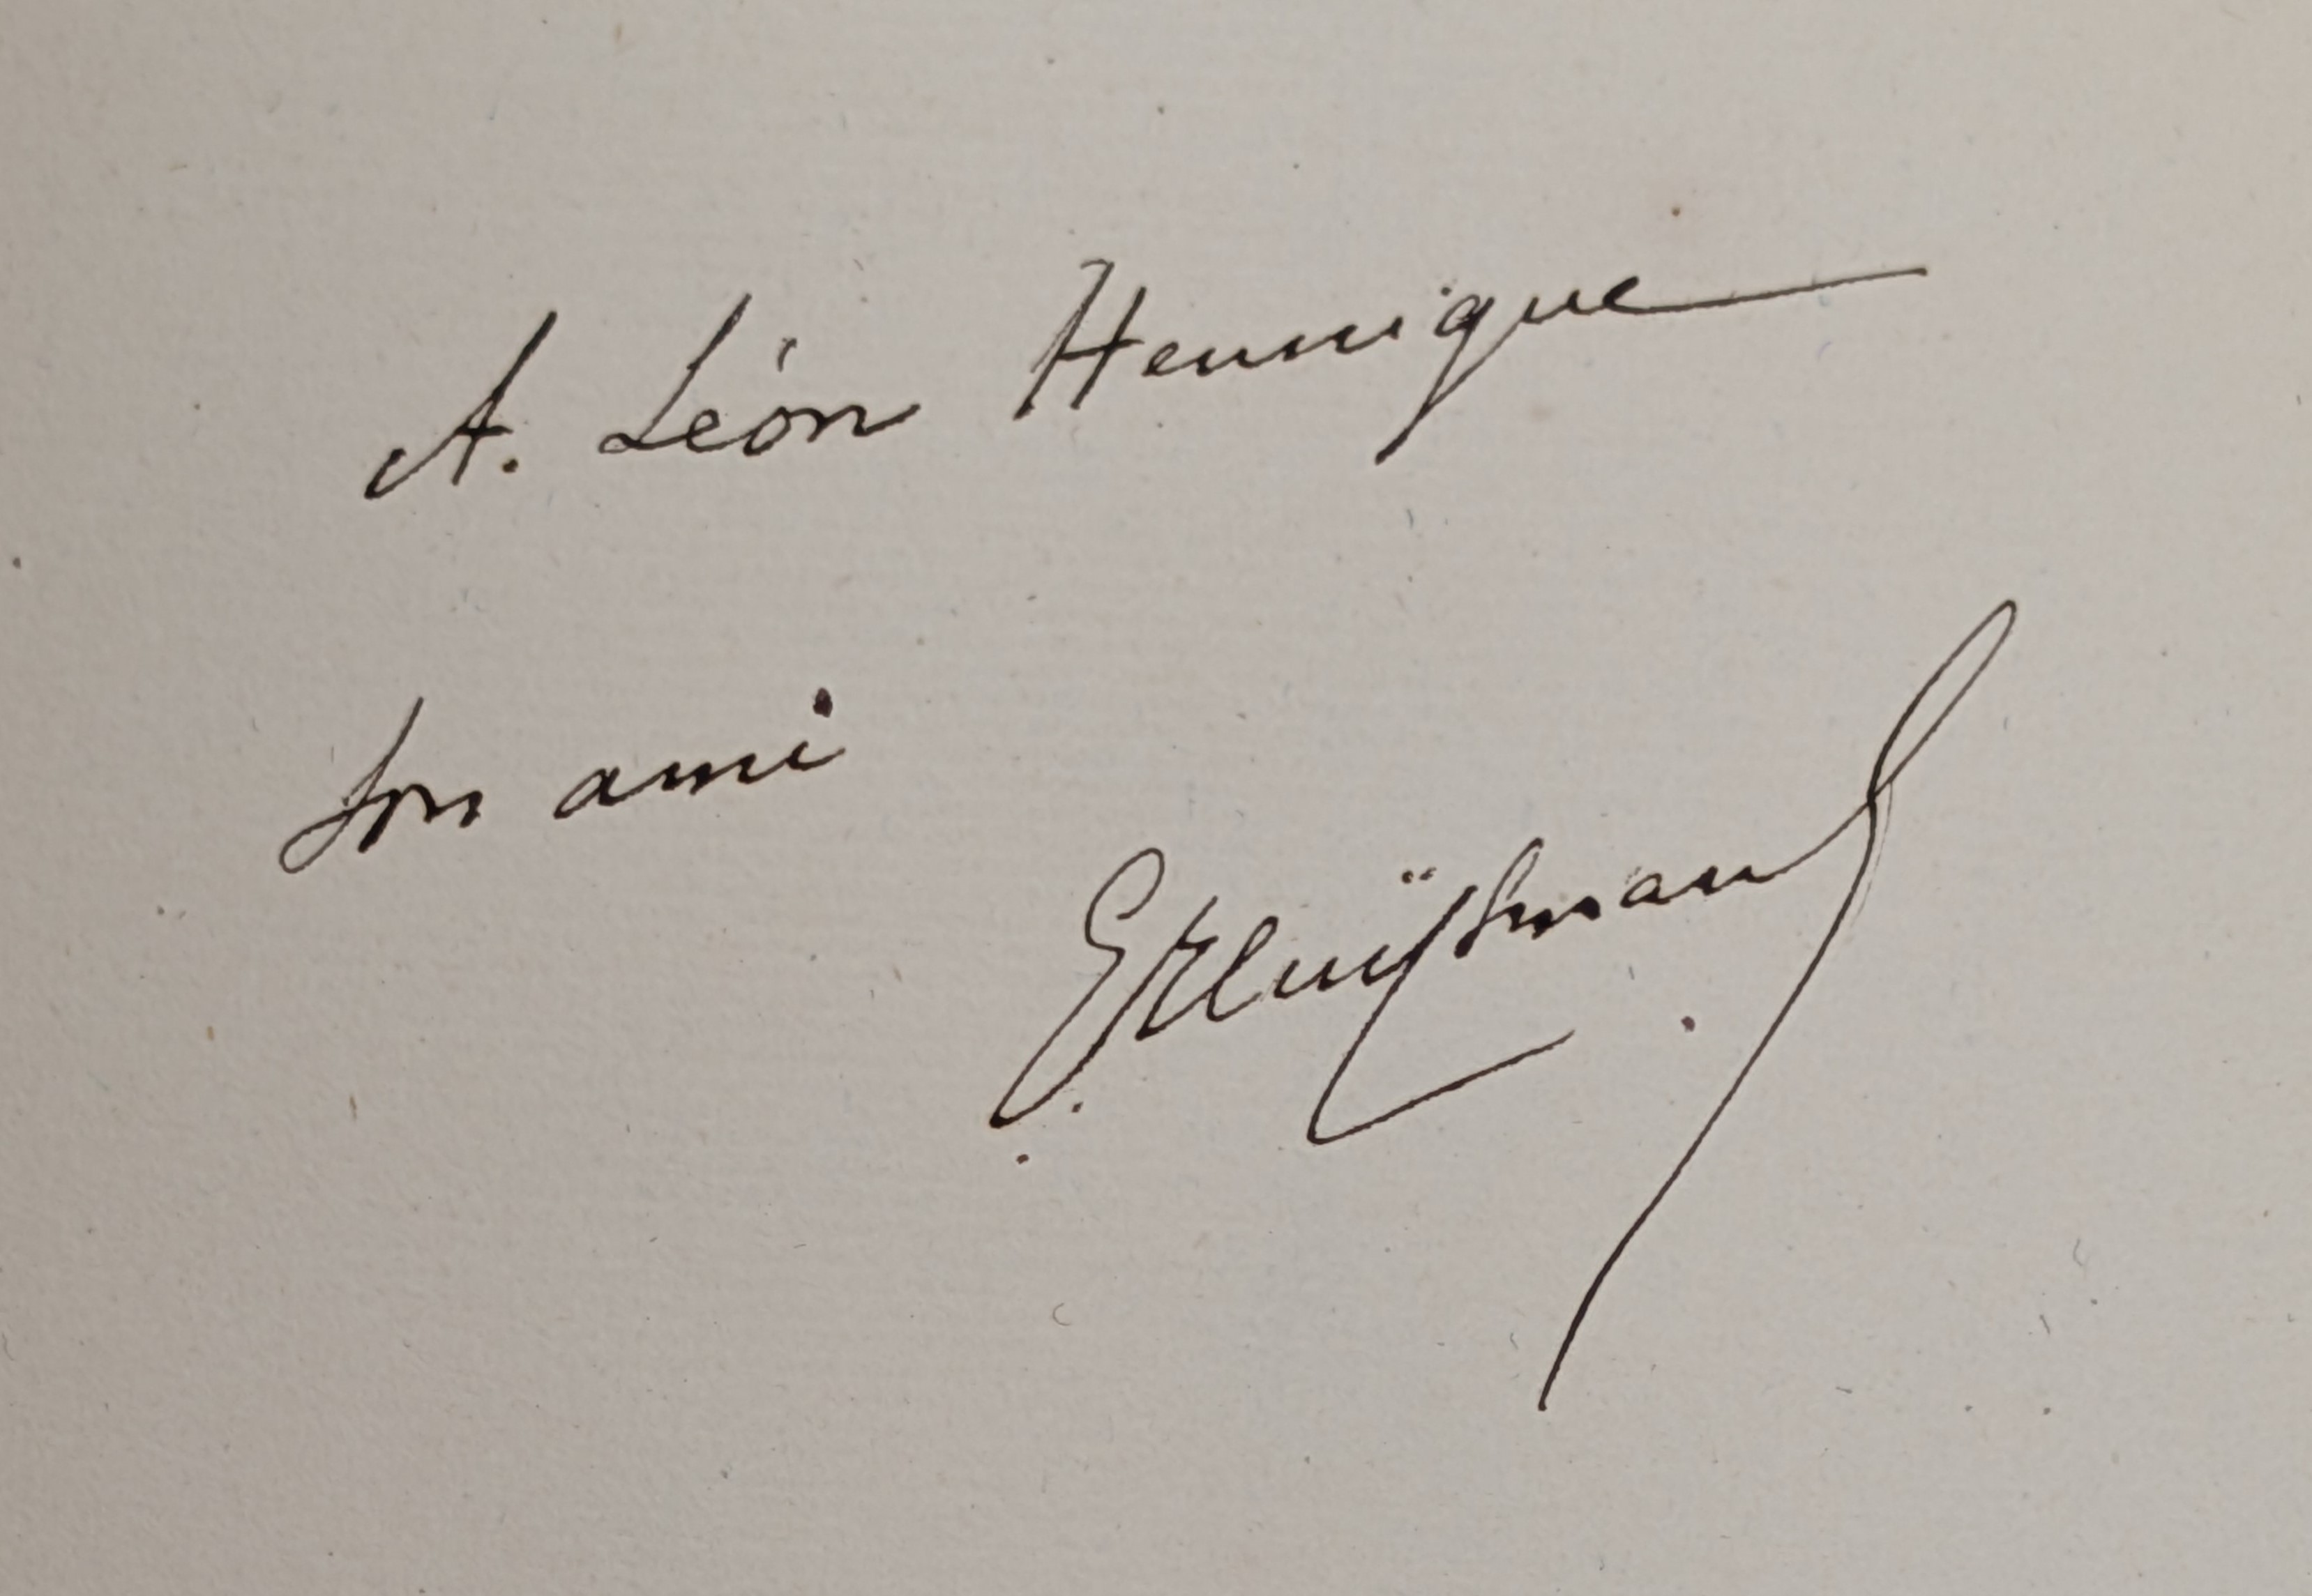 A. Léon Hennique
son ami
GHuÿsmans